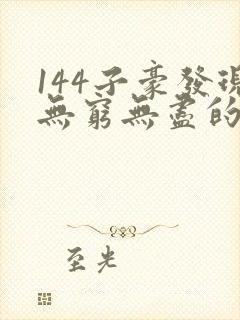 144子豪發現
無窮無盡的
至光